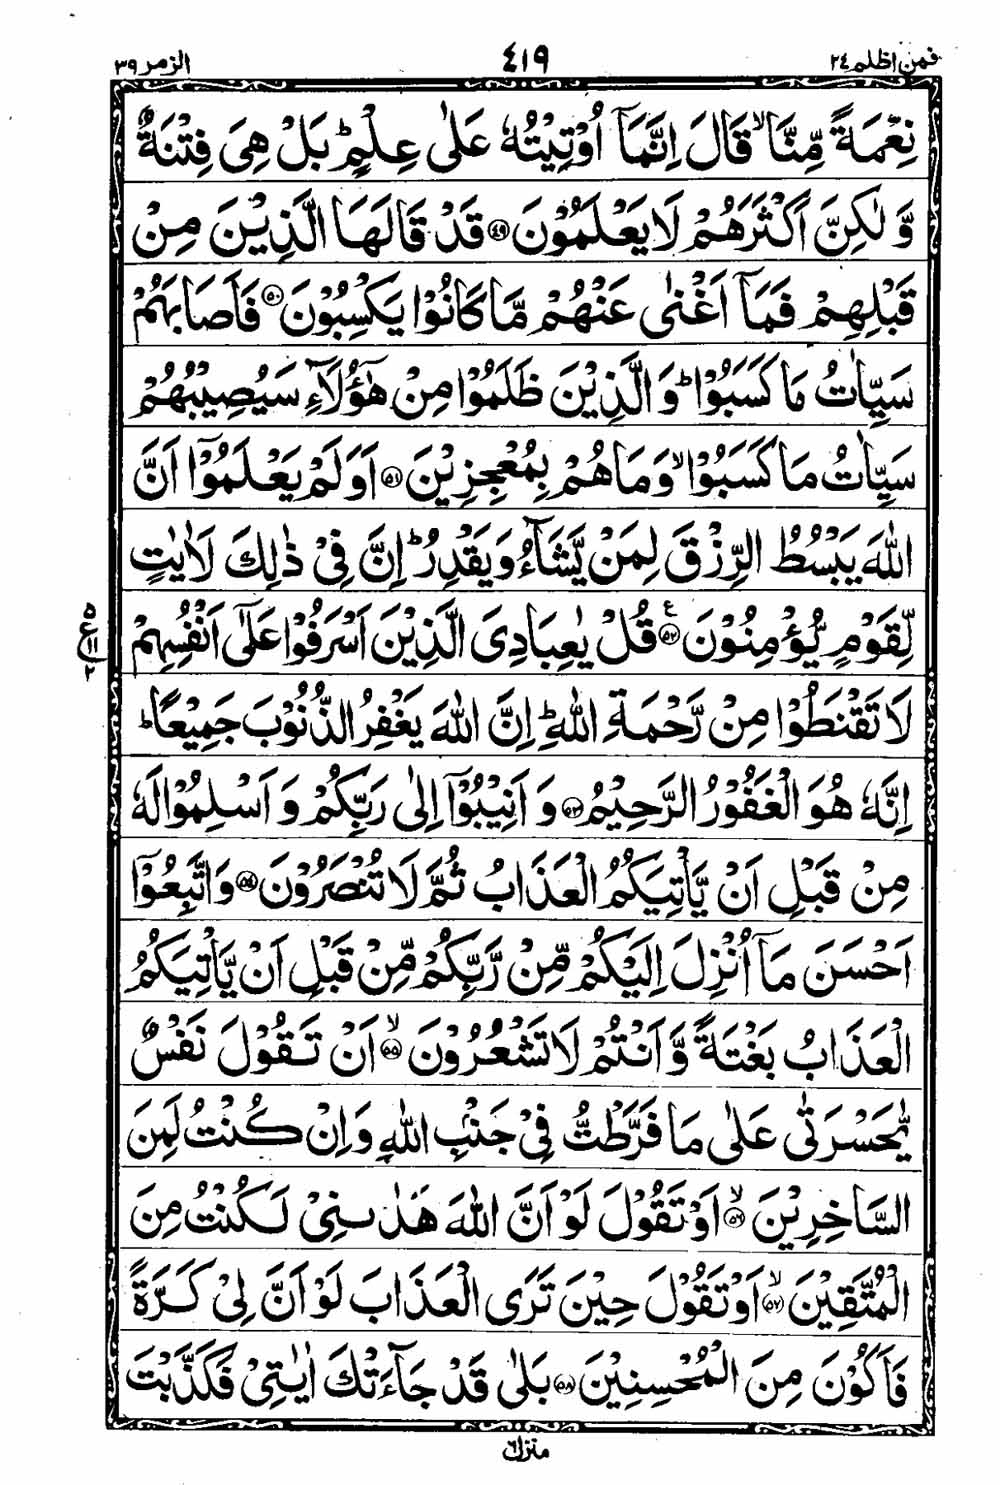 فمن اظلم ٢٤
٤١٩
الزمر ٣٩
نِعْمَةً مِّنَّا ۙ قَالَ اِنَّمَاۤ اُوْتِيْتُهٗ عَلٰى عِلْمٍ ؕ بَلْ هِىَ فِتْنَةٌ
وَّلٰكِنَّ اَكْثَرَهُمْ لَا يَعْلَمُوْنَ ﴿٤٩﴾ قَدْ قَالَهَا الَّذِيْنَ مِنْ
قَبْلِهِمْ فَمَاۤ اَغْنٰى عَنْهُمْ مَّا كَانُوْا يَكْسِبُوْنَ ﴿٥٠﴾ فَاَصَابَهُمْ
سَيِّاٰتُ مَا كَسَبُوْا ؕ وَالَّذِيْنَ ظَلَمُوْا مِنْ هٰۤؤُلَاۤءِ سَيُصِيْبُهُمْ
سَيِّاٰتُ مَا كَسَبُوْا ۙ وَمَا هُمْ بِمُعْجِزِيْنَ ﴿٥١﴾ اَوَلَمْ يَعْلَمُوْۤا اَنَّ
اللّٰهَ يَبْسُطُ الرِّزْقَ لِمَنْ يَّشَآءُ وَيَقْدِرُ ؕ اِنَّ فِىْ ذٰلِكَ لَاٰيٰتٍ
لِّقَوْمٍ يُّؤْمِنُوْنَ ﴿٥٢﴾ ع قُلْ يٰعِبَادِىَ الَّذِيْنَ اَسْرَفُوْا عَلٰٓى اَنْفُسِهِمْ
٥
ع
١١
٢
لَا تَقْنَطُوْا مِنْ رَّحْمَةِ اللّٰهِ ؕ اِنَّ اللّٰهَ يَغْفِرُ الذُّنُوْبَ جَمِيْعًا ؕ
اِنَّهٗ هُوَ الْغَفُوْرُ الرَّحِيْمُ ﴿٥٣﴾ وَاَنِيْبُوْۤا اِلٰى رَبِّكُمْ وَاَسْلِمُوْا لَهٗ
مِنْ قَبْلِ اَنْ يَّاْتِيَكُمُ الْعَذَابُ ثُمَّ لَا تُنْصَرُوْنَ ﴿٥٤﴾ وَاتَّبِعُوْۤا
اَحْسَنَ مَاۤ اُنْزِلَ اِلَيْكُمْ مِّنْ رَّبِّكُمْ مِّنْ قَبْلِ اَنْ يَّاْتِيَكُمُ
الْعَذَابُ بَغْتَةً وَّاَنْتُمْ لَا تَشْعُرُوْنَ ﴿٥٥﴾ ۙ اَنْ تَقُوْلَ نَفْسٌ
يّٰحَسْرَتٰى عَلٰى مَا فَرَّطْتُّ فِىْ جَنْۢبِ اللّٰهِ وَاِنْ كُنْتُ لَمِنَ
السَّاخِرِيْنَ ﴿٥٦﴾ ۙ اَوْ تَقُوْلَ لَوْ اَنَّ اللّٰهَ هَدٰىنِىْ لَكُنْتُ مِنَ
الْمُتَّقِيْنَ ﴿٥٧﴾ ۙ اَوْ تَقُوْلَ حِيْنَ تَرَى الْعَذَابَ لَوْ اَنَّ لِىْ كَرَّةً
فَاَكُوْنَ مِنَ الْمُحْسِنِيْنَ ﴿٥٨﴾ بَلٰى قَدْ جَآءَتْكَ اٰيٰتِىْ فَكَذَّبْتَ
منزل ٦